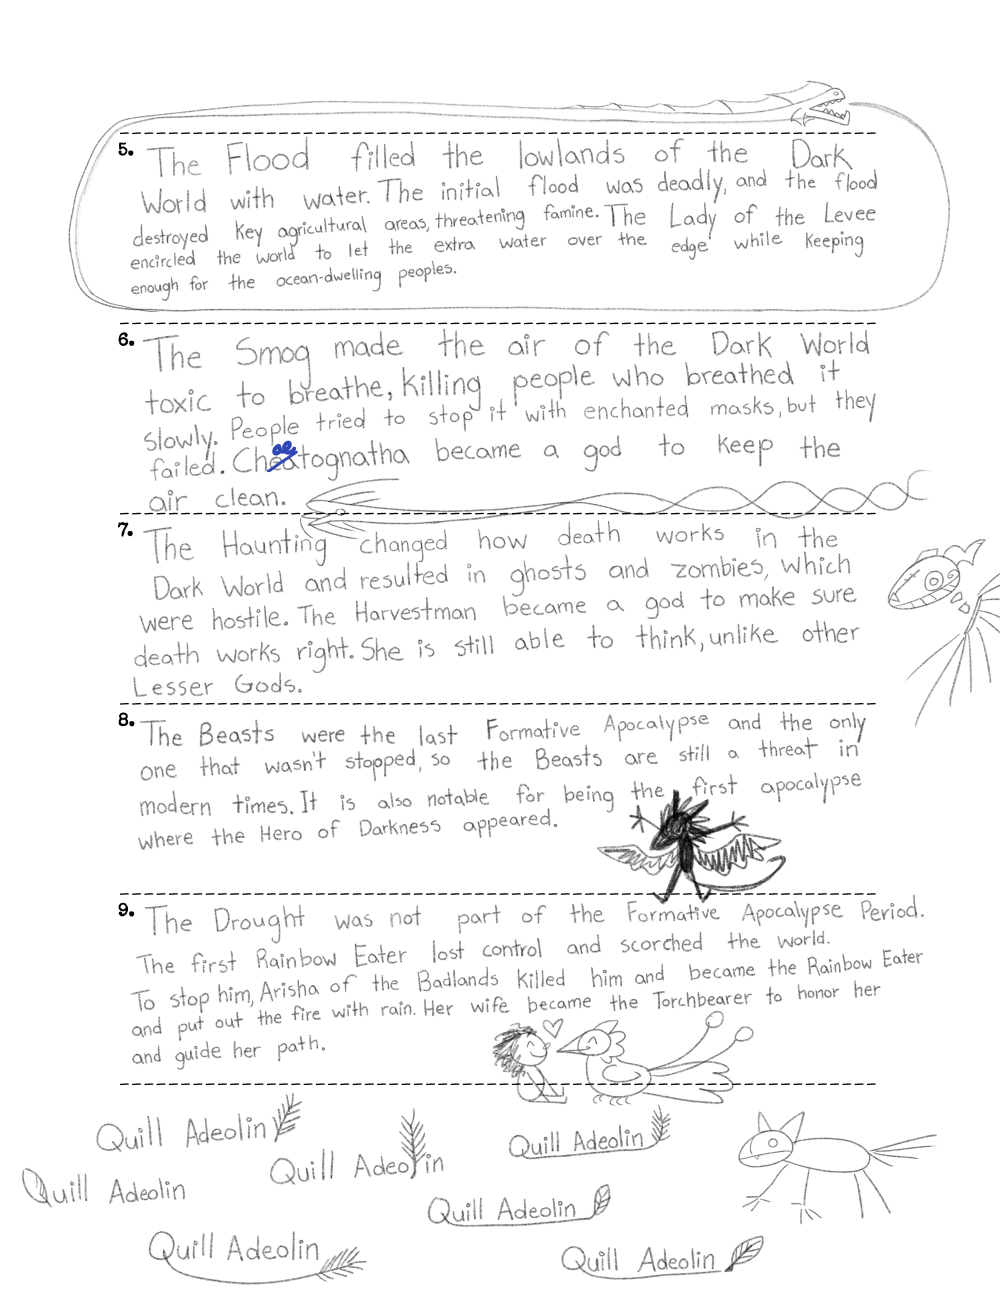 5. The Flood filled the lowlands of the Dark
World with water. The initial flood was deadly, and the flood
destroyed key agricultural areas, threatening famine. The Lady of the Levee
encircled the world to let the extra water over the edge while keeping
enough for the ocean-dwelling peoples.
6. The Smog made the air of the Dark World
toxic to breathe, killing people who breathed it
slowly. People tried to stop it with enchanted masks, but they
failed. Chaetognatha became a god to keep the
air clean.
7. The Haunting changed how death works in the
Dark World and resulted in ghosts and zombies, which
were hostile. The Harvestman became a god to make sure
death works right. She is still able to think, unlike other
Lesser Gods.
8. The Beasts were the last Formative Apocalypse and the only
one that wasn't stopped, so the Beasts are still a threat in
modern times. It is also notable for being the first apocalypse
where the Hero of Darkness appeared.
9. The Drought was not part of the Formative Apocalypse Period.
The first Rainbow Eater lost control and scorched the world.
To stop him, Arisha of the Badlands killed him and became the Rainbow Eater
and put out the fire with rain. Her wife became the Torchbearer to honor her
and guide her path.
Quill Adeolin
Quill Adeolin
Quill Adeolin
Quill Adeolin
Quill Adeolin
Quill Adeolin
Quill Adeolin